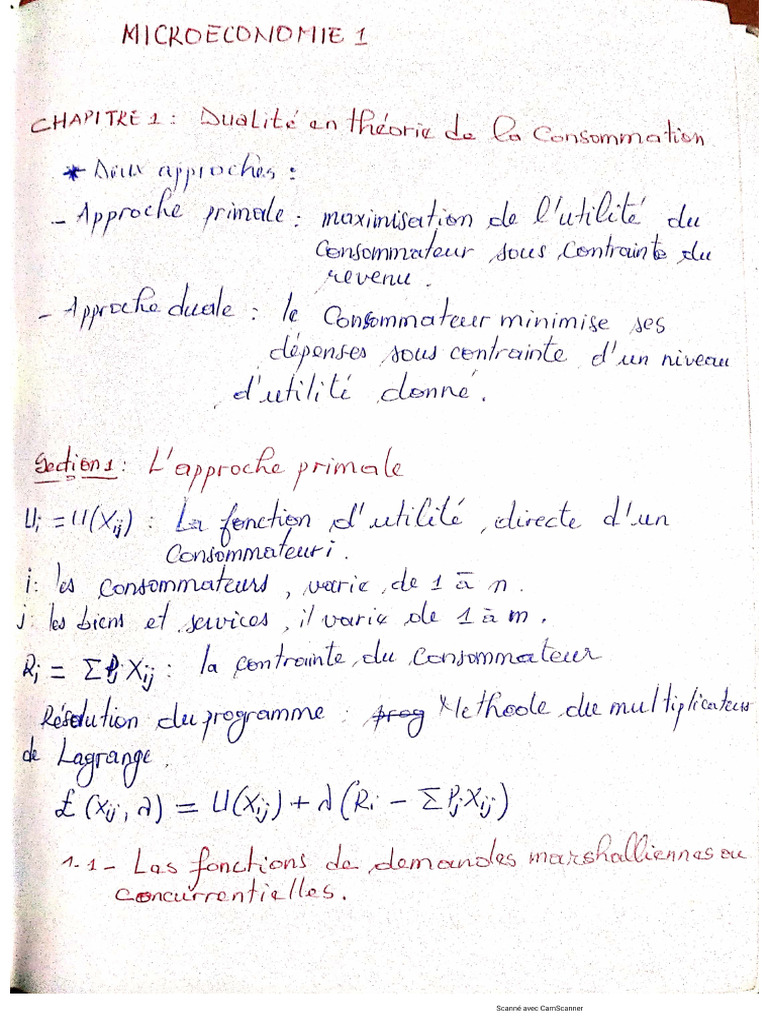 MICROECONOMIE 1
CHAPITRE 1 : Dualité en théorie de la Consommation
* Deux approches :
- Approche primale : maximisation de l'utilité du
Consommateur sous contrainte du
revenu.
- Approche duale : le Consommateur minimise ses
dépenses sous contrainte d'un niveau
d'utilité donné.
Section 1 : L'approche primale
Ui = U(Xij) : La fonction d'utilité directe d'un
Consommateur i.
i : les consommateurs, varie de 1 à n.
j : les biens et services, il varie de 1 à m.
Ri = ΣPj Xij : la contrainte du Consommateur
Résolution du programme : prog Methode du multiplicateur
de Lagrange.
£ (Xij, λ) = U(Xij) + λ(Ri - ΣPjXij)
1.1 - Les fonctions de demandes marshalliennes ou
concurrentielles.
Scanné avec CamScanner